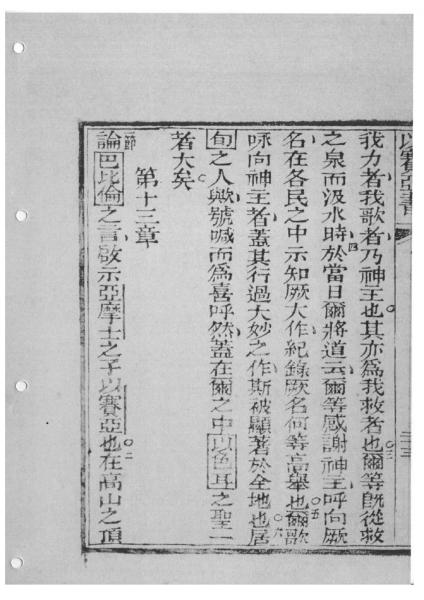 以賽亞書
我力者我歌者乃神主也其亦爲我救者也三爾等旣從救
之泉而汲水時四於當日爾將道云爾等感謝神主呼向厥
名在各民之中示知厥大作紀錄厥名何等高舉也五爾歌
咏向神主者蓋其行過大妙之作斯被顯著於全地也六居
旬之人歟號喊而爲喜呼然蓋在爾之中以色耳之聖一
者大矣
第十三章
一節論巴比倫之言啟示亞摩士之子以賽亞也二在高山之頂